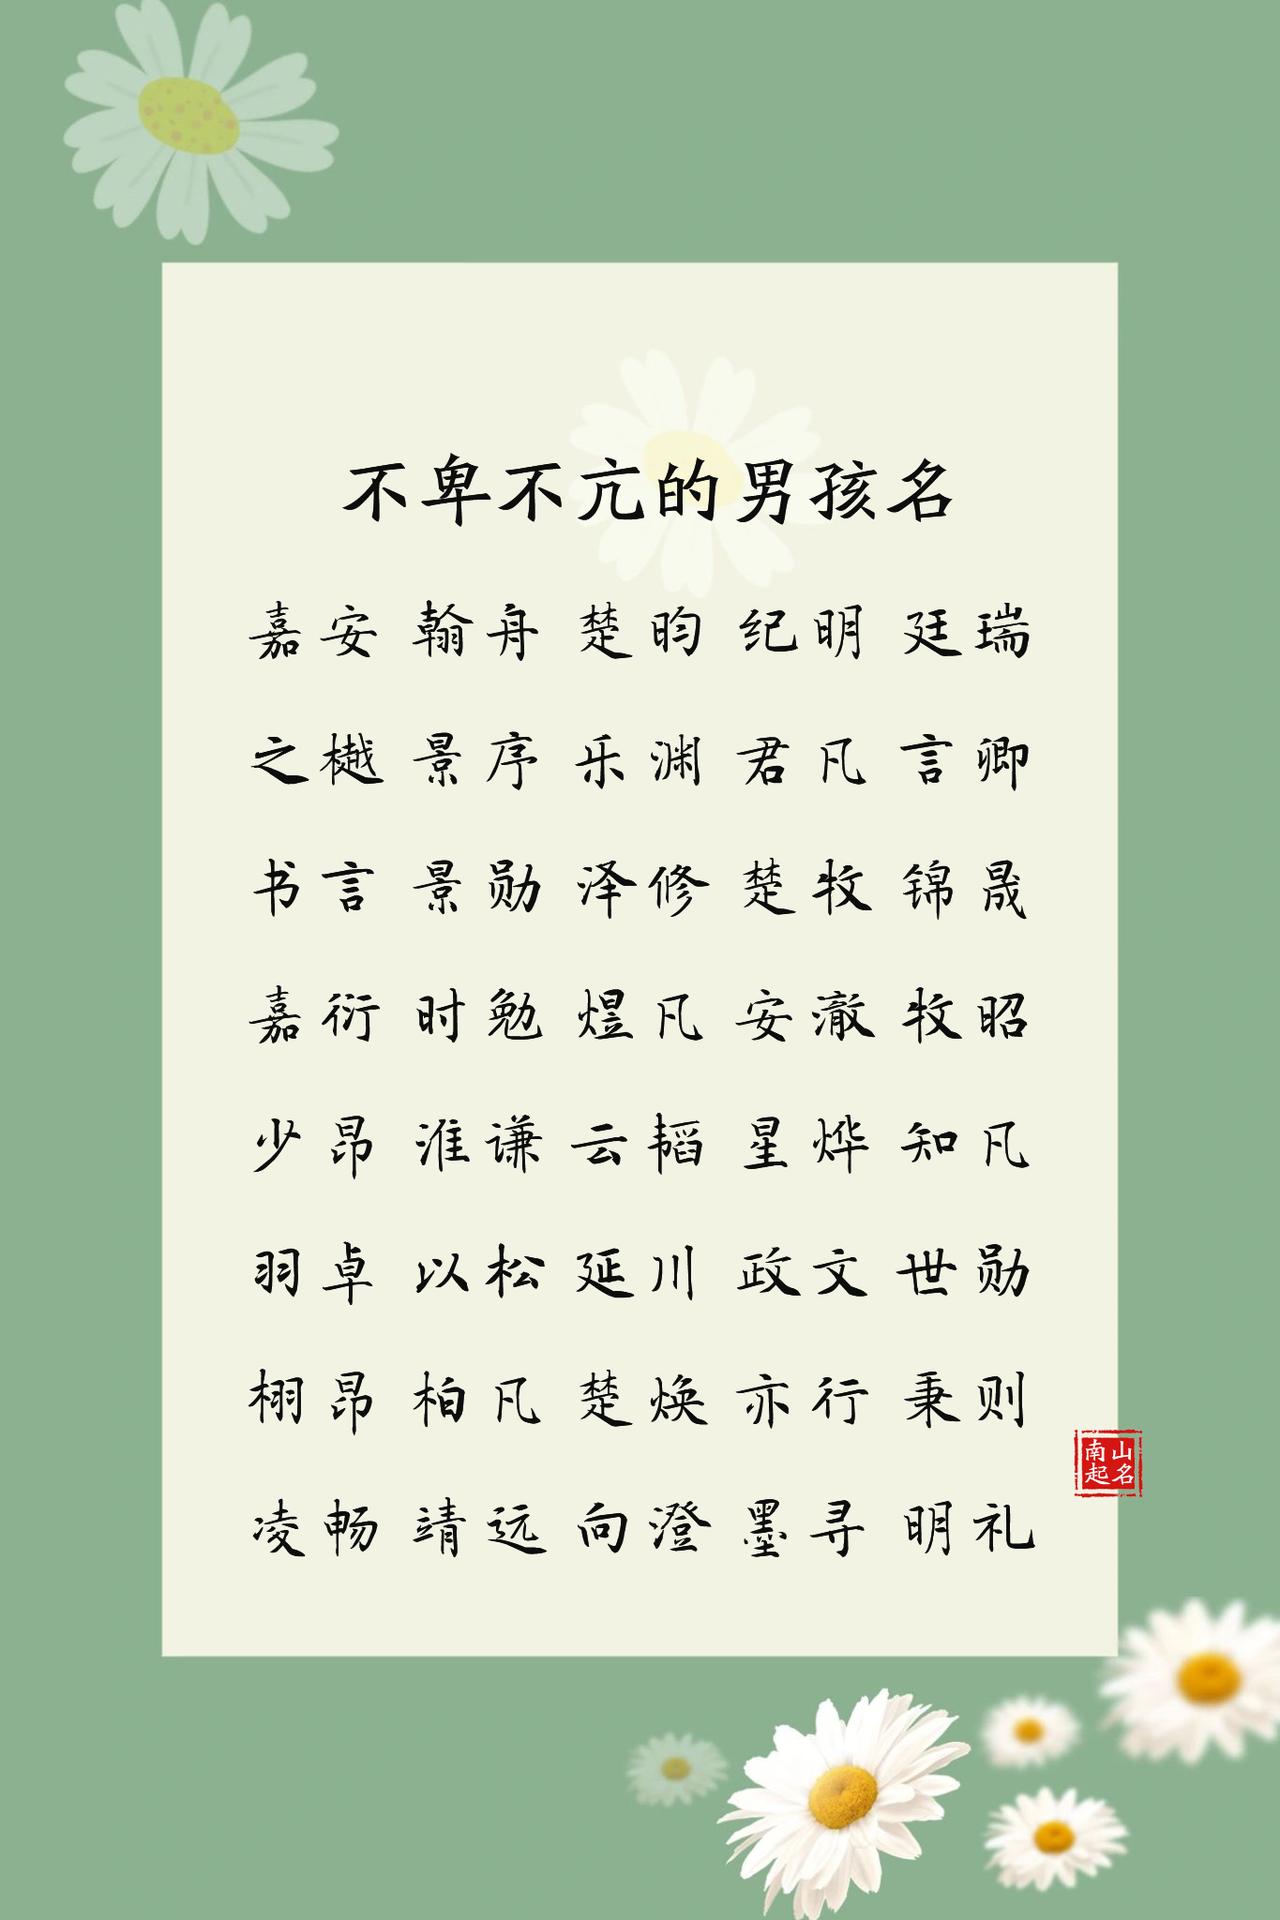 不卑不亢的男孩名
嘉安 翰舟 楚昀 纪明 廷瑞
之樾 景序 乐渊 君凡 言卿
书言 景勋 泽修 楚牧 锦晟
嘉衍 时勉 煜凡 安澈 牧昭
少昂 淮谦 云韬 星烨 知凡
羽卓 以松 延川 政文 世勋
栩昂 柏凡 楚焕 亦行 秉则
南山
起名
凌畅 靖远 向澄 墨寻 明礼